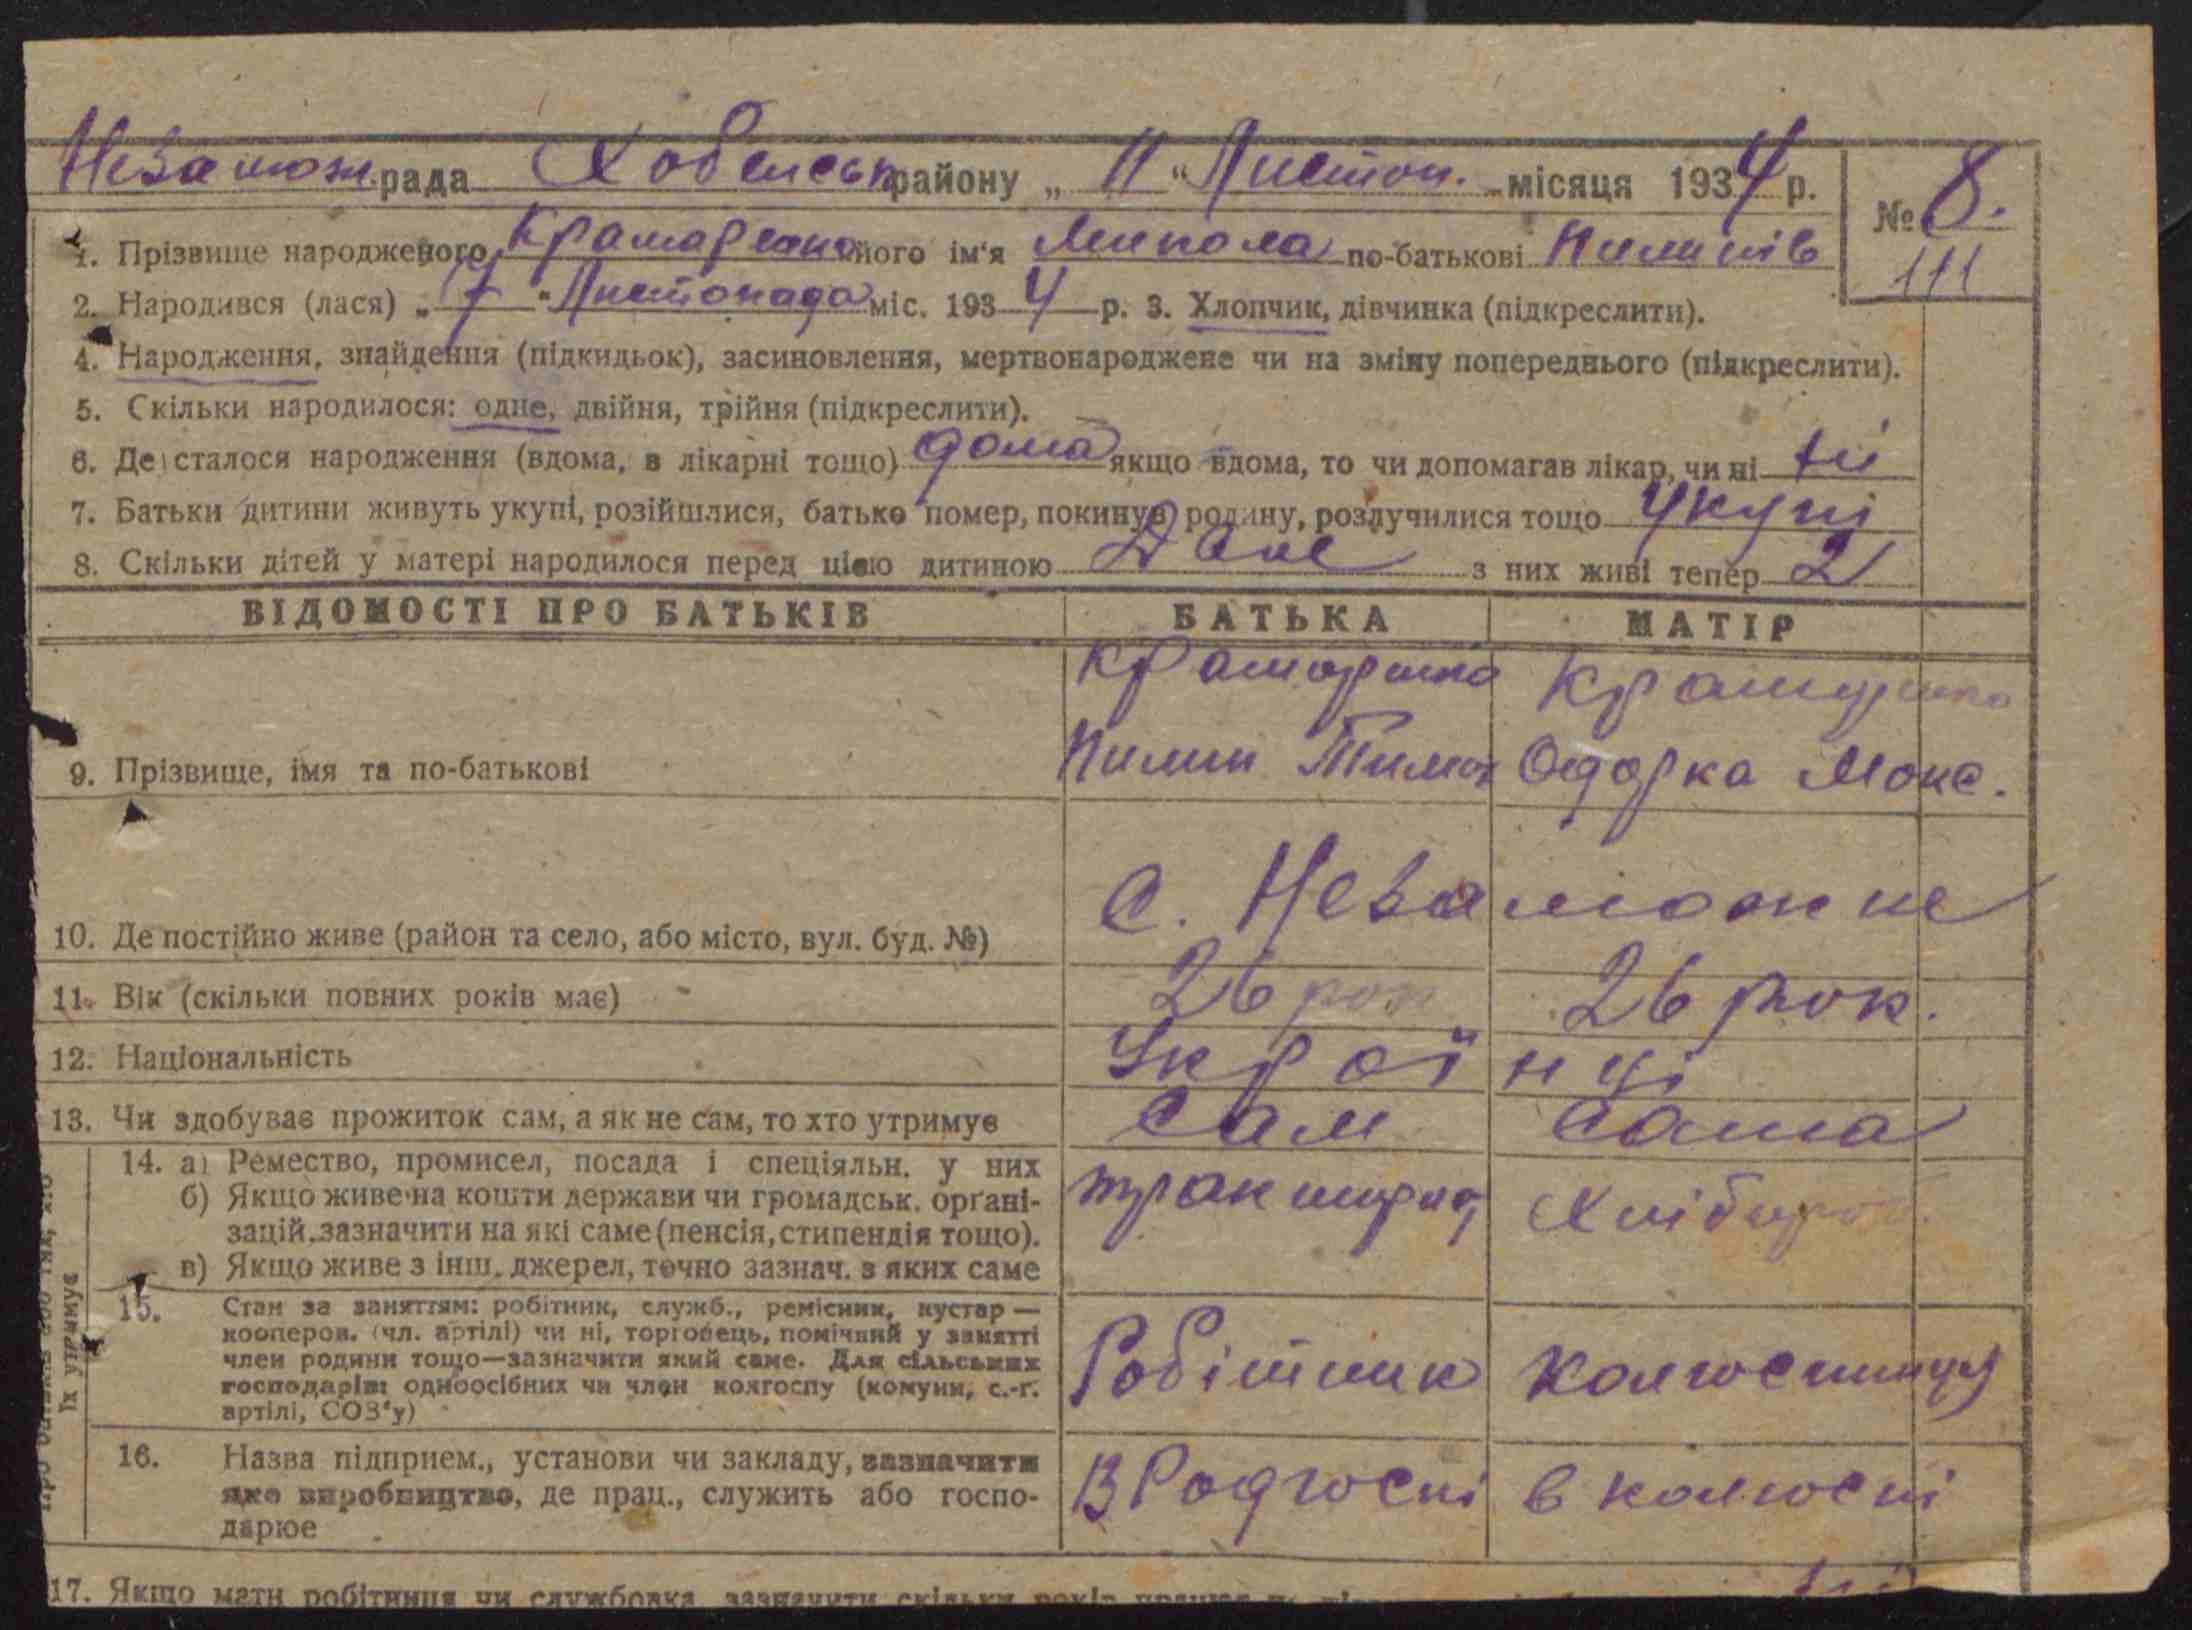 Незамож. рада Хобенськ району „ 11 “ Листоп. місяця 1934 р.
№ 8.
111
1. Прізвище народженого Крамаренко його ім'я Микола по-батькові Пилипів
2. Народився (лася) „ 7 “ Листопада міс. 1934 р. 3. Хлопчик, дівчинка (підкреслити).
4. Народження, знайдення (підкидьок), засиновлення, мертвонароджене чи на зміну попереднього (підкреслити).
5. Скільки народилося: одне, двійня, трійня (підкреслити).
6. Де сталося народження (вдома, в лікарні тощо) дома якщо вдома, то чи допомагав лікар, чи ні ні
7. Батьки дитини живуть укупі, розійшлися, батько помер, покинув родину, розлучилися тощо укупі
8. Скільки дітей у матері народилося перед цією дитиною Двоє з них живі тепер 2
ВІДОМОСТІ ПРО БАТЬКІВ БАТЬКА МАТІР
Крамаренко Крамаренко
9. Прізвище, імя та по-батькові Пилип Тимох Одарка Макс.
10. Де постійно живе (район та село, або місто, вул. буд. №) с. Незаможне
11. Вік (скільки повних років має) 26 рок 26 рок.
12. Національність Українці
13. Чи здобуває прожиток сам, а як не сам, то хто утримує Сам Сама
14. а) Ремество, промисел, посада і спеціяльн. у них
б) Якщо живе на кошти держави чи громадськ. орґані-
зацій, зазначити на які саме (пенсія, стипендія тощо).
в) Якщо живе з інш. джерел, точно зазнач. з яких саме
Хлібороб.
15. Стан за заняттям: робітник, служб., ремісник, кустар —
кооперов. (чл. артілі) чи ні, торговець, помічний у занятті
член родини тощо—зазначити який саме. Для сільських
господарів: одноосібних чи член колгоспу (комуни, с.-г.
артілі, СОЗ'у)
Робітник Колгоспниця
16. Назва підприєм., установи чи закладу, зазначити
яке виробництво, де прац., служить або госпо-
дарює
В Радгоспі в колгоспі
їх утримує
17. Якщо мати робітниця чи службовка, зазначити скільки років працює